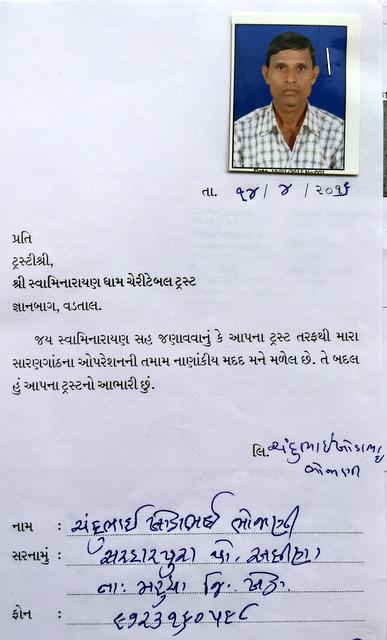 તા. ૧૪ / ૪ / ૨૦૧૬
પ્રતિ
ટ્રસ્ટીશ્રી,
શ્રી સ્વામિનારાયણ ધામ ચેરીટેબલ ટ્રસ્ટ
જ્ઞાનબાગ, વડતાલ.
જય સ્વામિનારાયણ સહ જણાવવાનું કે આપના ટ્રસ્ટ તરફથી મારા
સારણગાંઠના ઓપરેશનની તમામ નાણાંકીય મદદ મને મળેલ છે. તે બદલ
હું આપના ટ્રસ્ટનો આભારી છું.
લિ. ચંદુભાઈ
નામ : ચંદુભાઈ
સરનામું : સરદારપુરા પો.
તા. જિ. ખેડા
ફોન :